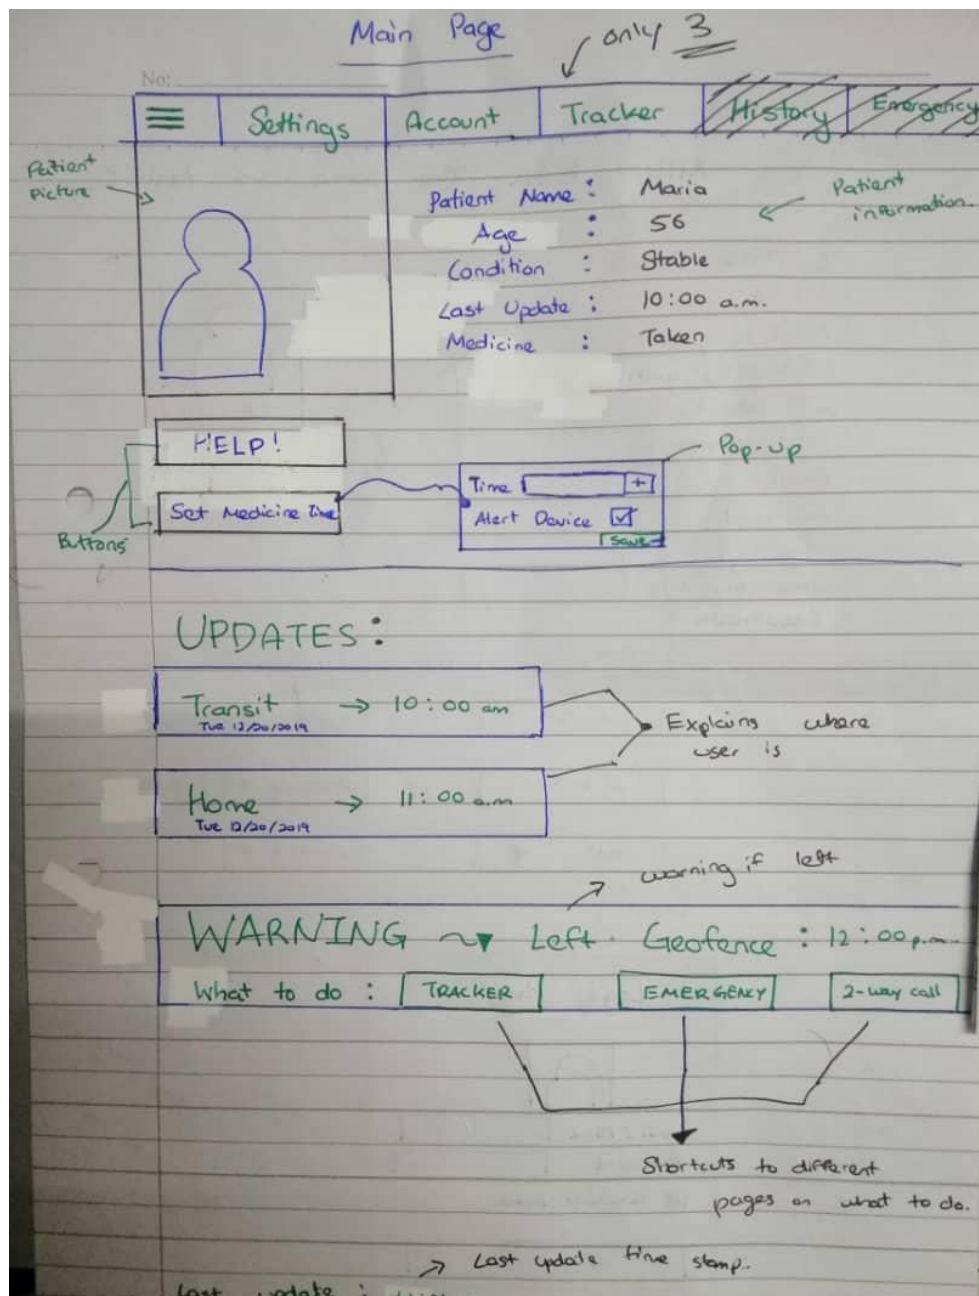 Main Page
only 3
No:
Settings Account Tracker History Emergency
Patient Picture
Patient Name : Maria
Age : 56
Condition : Stable
Last Update : 10:00 a.m.
Medicine : Taken
Patient information.
HELP!
Set Medicine Time
Buttons
Pop-up
Time +
Alert Device
Save
UPDATES :
Transit → 10:00 am
Tue 12/20/2019
Home → 11:00 a.m
Tue 12/20/2019
Explains where
user is
warning if left
WARNING Left Geofence : 12:00 p.m.
What to do : TRACKER EMERGENCY 2-way call
Shortcuts to different
pages on what to do.
Last update time stamp.
Last update :